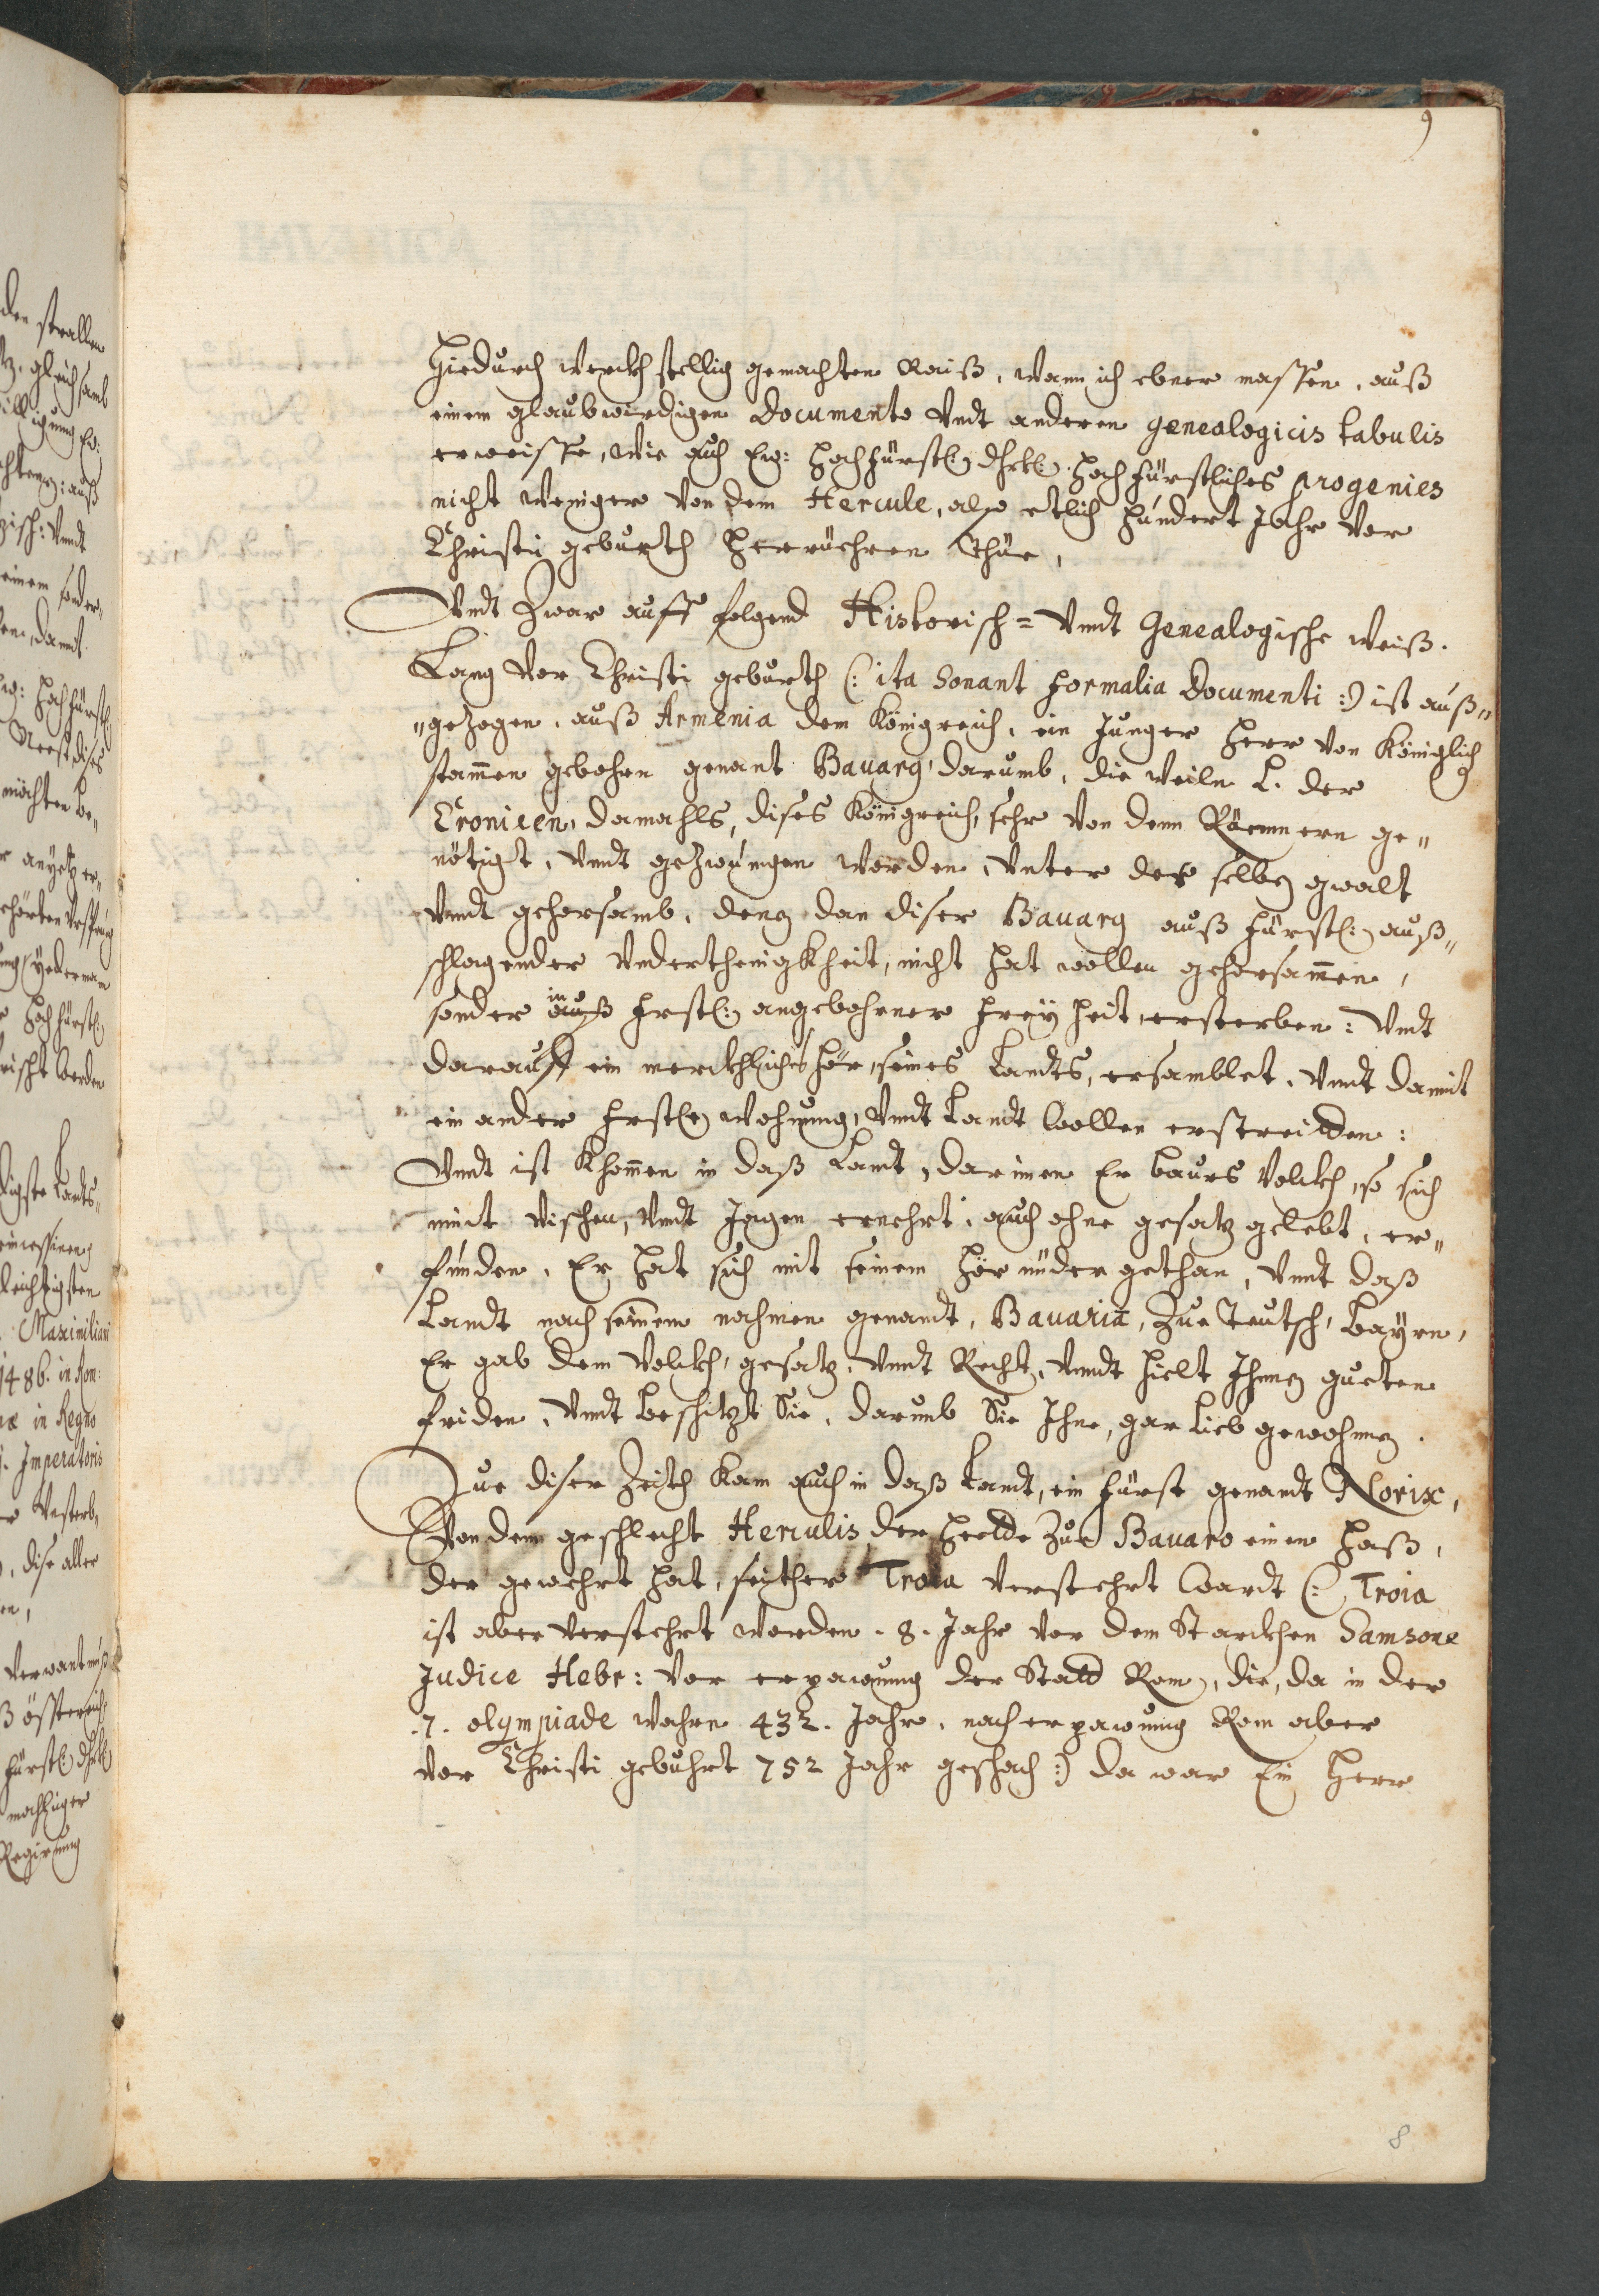 9
Hiedurch werckhstellig gemachten Raiß, wann ich ebner massen, auß
einem glaubwirdigen Documento Vndt anderen genealogicis tabulis
erweisse, wie auch Ew: Hochfürstl: Dhrtl: Hochfürstliches progenies
nicht weniger von dem Hercule, also etlich hundert Jahr vor
Christi geburth herrüehren thüe,
Vndt Zwar auff folgend Historisch= Vnndt Genealogische weiß.
Lang vor Christi geburth (: ita Sonant formalia Documenti :) ist auß„
„gezogen, auß Armenia dem Königreich, ein Junger Herr von Königlich
stammen gebohen genant Bavarg, darumb, die weiln L. der
Cronicen, damahls, dises Königreich, sehr von denn Röemnern ge„
nötigt, vnndt gezwungen worden, vnter der selben gwalt
vnndt gehorsamb, deng dan diser Bavarg auß Fürstl: auß„
schlagender vnderthenigkheit, nicht hat wollen gehorsammen,
sonder auß in Frstl: angebohrner freyheit, ersterben: Vndt
darauff ein merckhliches hör, seines Landts, ersamblet, vnndt damit
ein ander Frstle wohnung, Vndt Landt wollen erstreitden:
Vnndt ist khommen in daß Landt, darinnen Er baurs volckh, so sich
mit vischen, vndt Jagen ernehrt, auch ohne gesatz gelebt, er„
funden, Er hat sich mit seinem hör nüder gethan, vnndt daß
Landt nach seinem nahmen genandt, Bauaria, Zue Teutsch, Bayrn,
Er gab dem volckh, gesatz, vnndt Recht, vnndt hielt Ihnen gueten
friden, vndt beschitzt Sie, darumb Sie Ihne, gar lieb gewohnen.
Zue diser Zeith kam auch in daß Landt, ein Fürst genandt Norix,
Von dem geschlecht Herculis, der hedde Zue Bauaro einen haß,
der gewehrt hat, seither Troia verstehrt wardt (: Troia
ist aber verstehrt worden. 8. Jahr vor dem Starckhen Samsone
Judice Hebr: vor erpawung der Stadt Rom, die, da in der
.7. olympiade wahre 432. Jahr, nach erpawung Rom aber
vor Christi gebuhrt 752 Jahr geschach :) da war Ein Herr
8